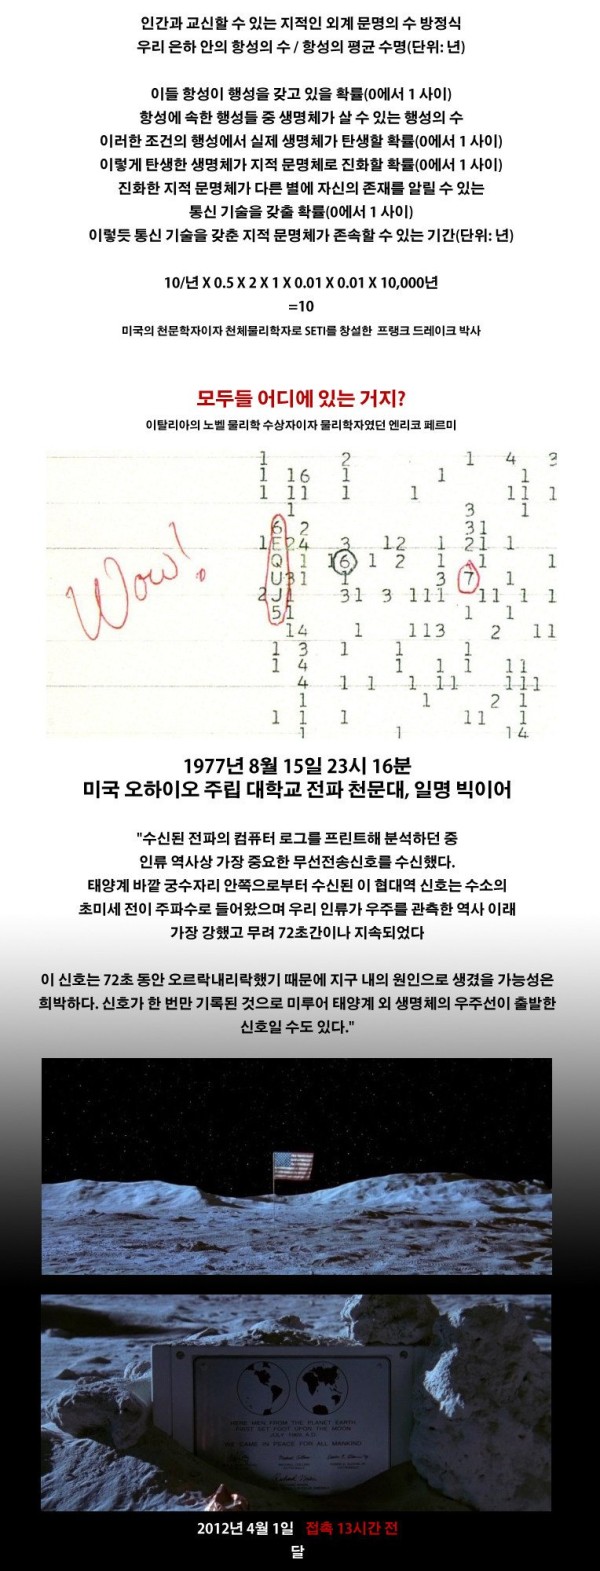 인간과 교신할 수 있는 지적인 외계 문명의 수 방정식
우리 은하 안의 항성의 수 / 항성의 평균 수명(단위: 년)
이들 항성이 행성을 갖고 있을 확률(0에서 1 사이)
항성에 속한 행성들 중 생명체가 살 수 있는 행성의 수
이러한 조건의 행성에서 실제 생명체가 탄생할 확률(0에서 1 사이)
이렇게 탄생한 생명체가 지적 문명체로 진화할 확률(0에서 1 사이)
진화한 지적 문명체가 다른 별에 자신의 존재를 알릴 수 있는
통신 기술을 갖출 확률(0에서 1 사이)
이렇듯 통신 기술을 갖춘 지적 문명체가 존속할 수 있는 기간(단위: 년)
10/년 X 0.5 X 2 X 1 X 0.01 X 0.01 X 10,000년
=10
미국의 천문학자이자 천체물리학자로 SETI를 창설한 프랭크 드레이크 박사
모두들 어디에 있는 거지?
이탈리아의 노벨 물리학 수상자이자 물리학자였던 엔리코 페르미
1 2 1 4 3
1 16 1 1 1
1 11 1 1 11 1
1 3 1
6 2 31
E 24 3 12 1 21 1
Q 1 16 1 2 1 1 1
U 31 1 3 7 1
2 J 1 31 3 111 11 1 1
5 1 1 1
14 1 113 2 11
1 3 1 1 1
1 4 1 1 1 11
4 1 1 1 11 111
1 1 2 1
1 1 1 11 1
1 1 14
Wow!
1977년 8월 15일 23시 16분
미국 오하이오 주립 대학교 전파 천문대, 일명 빅이어
"수신된 전파의 컴퓨터 로그를 프린트해 분석하던 중
인류 역사상 가장 중요한 무선전송신호를 수신했다.
태양계 바깥 궁수자리 안쪽으로부터 수신된 이 협대역 신호는 수소의
초미세 전이 주파수로 들어왔으며 우리 인류가 우주를 관측한 역사 이래
가장 강했고 무려 72초간이나 지속되었다
이 신호는 72초 동안 오르락내리락했기 때문에 지구 내의 원인으로 생겼을 가능성은
희박하다. 신호가 한 번만 기록된 것으로 미루어 태양계 외 생명체의 우주선이 출발한
신호일 수도 있다."
HERE MEN FROM THE PLANET EARTH
FIRST SET FOOT UPON THE MOON
JULY 1969 A.D.
WE CAME IN PEACE FOR ALL MANKIND
2012년 4월 1일 접촉 13시간 전
달